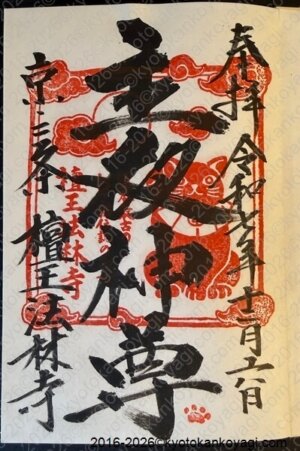 奉拝 令和七年
主夜神尊
京三条 檀王法林寺
檀王法林寺
2016-2026©kyotokankoyagi.com